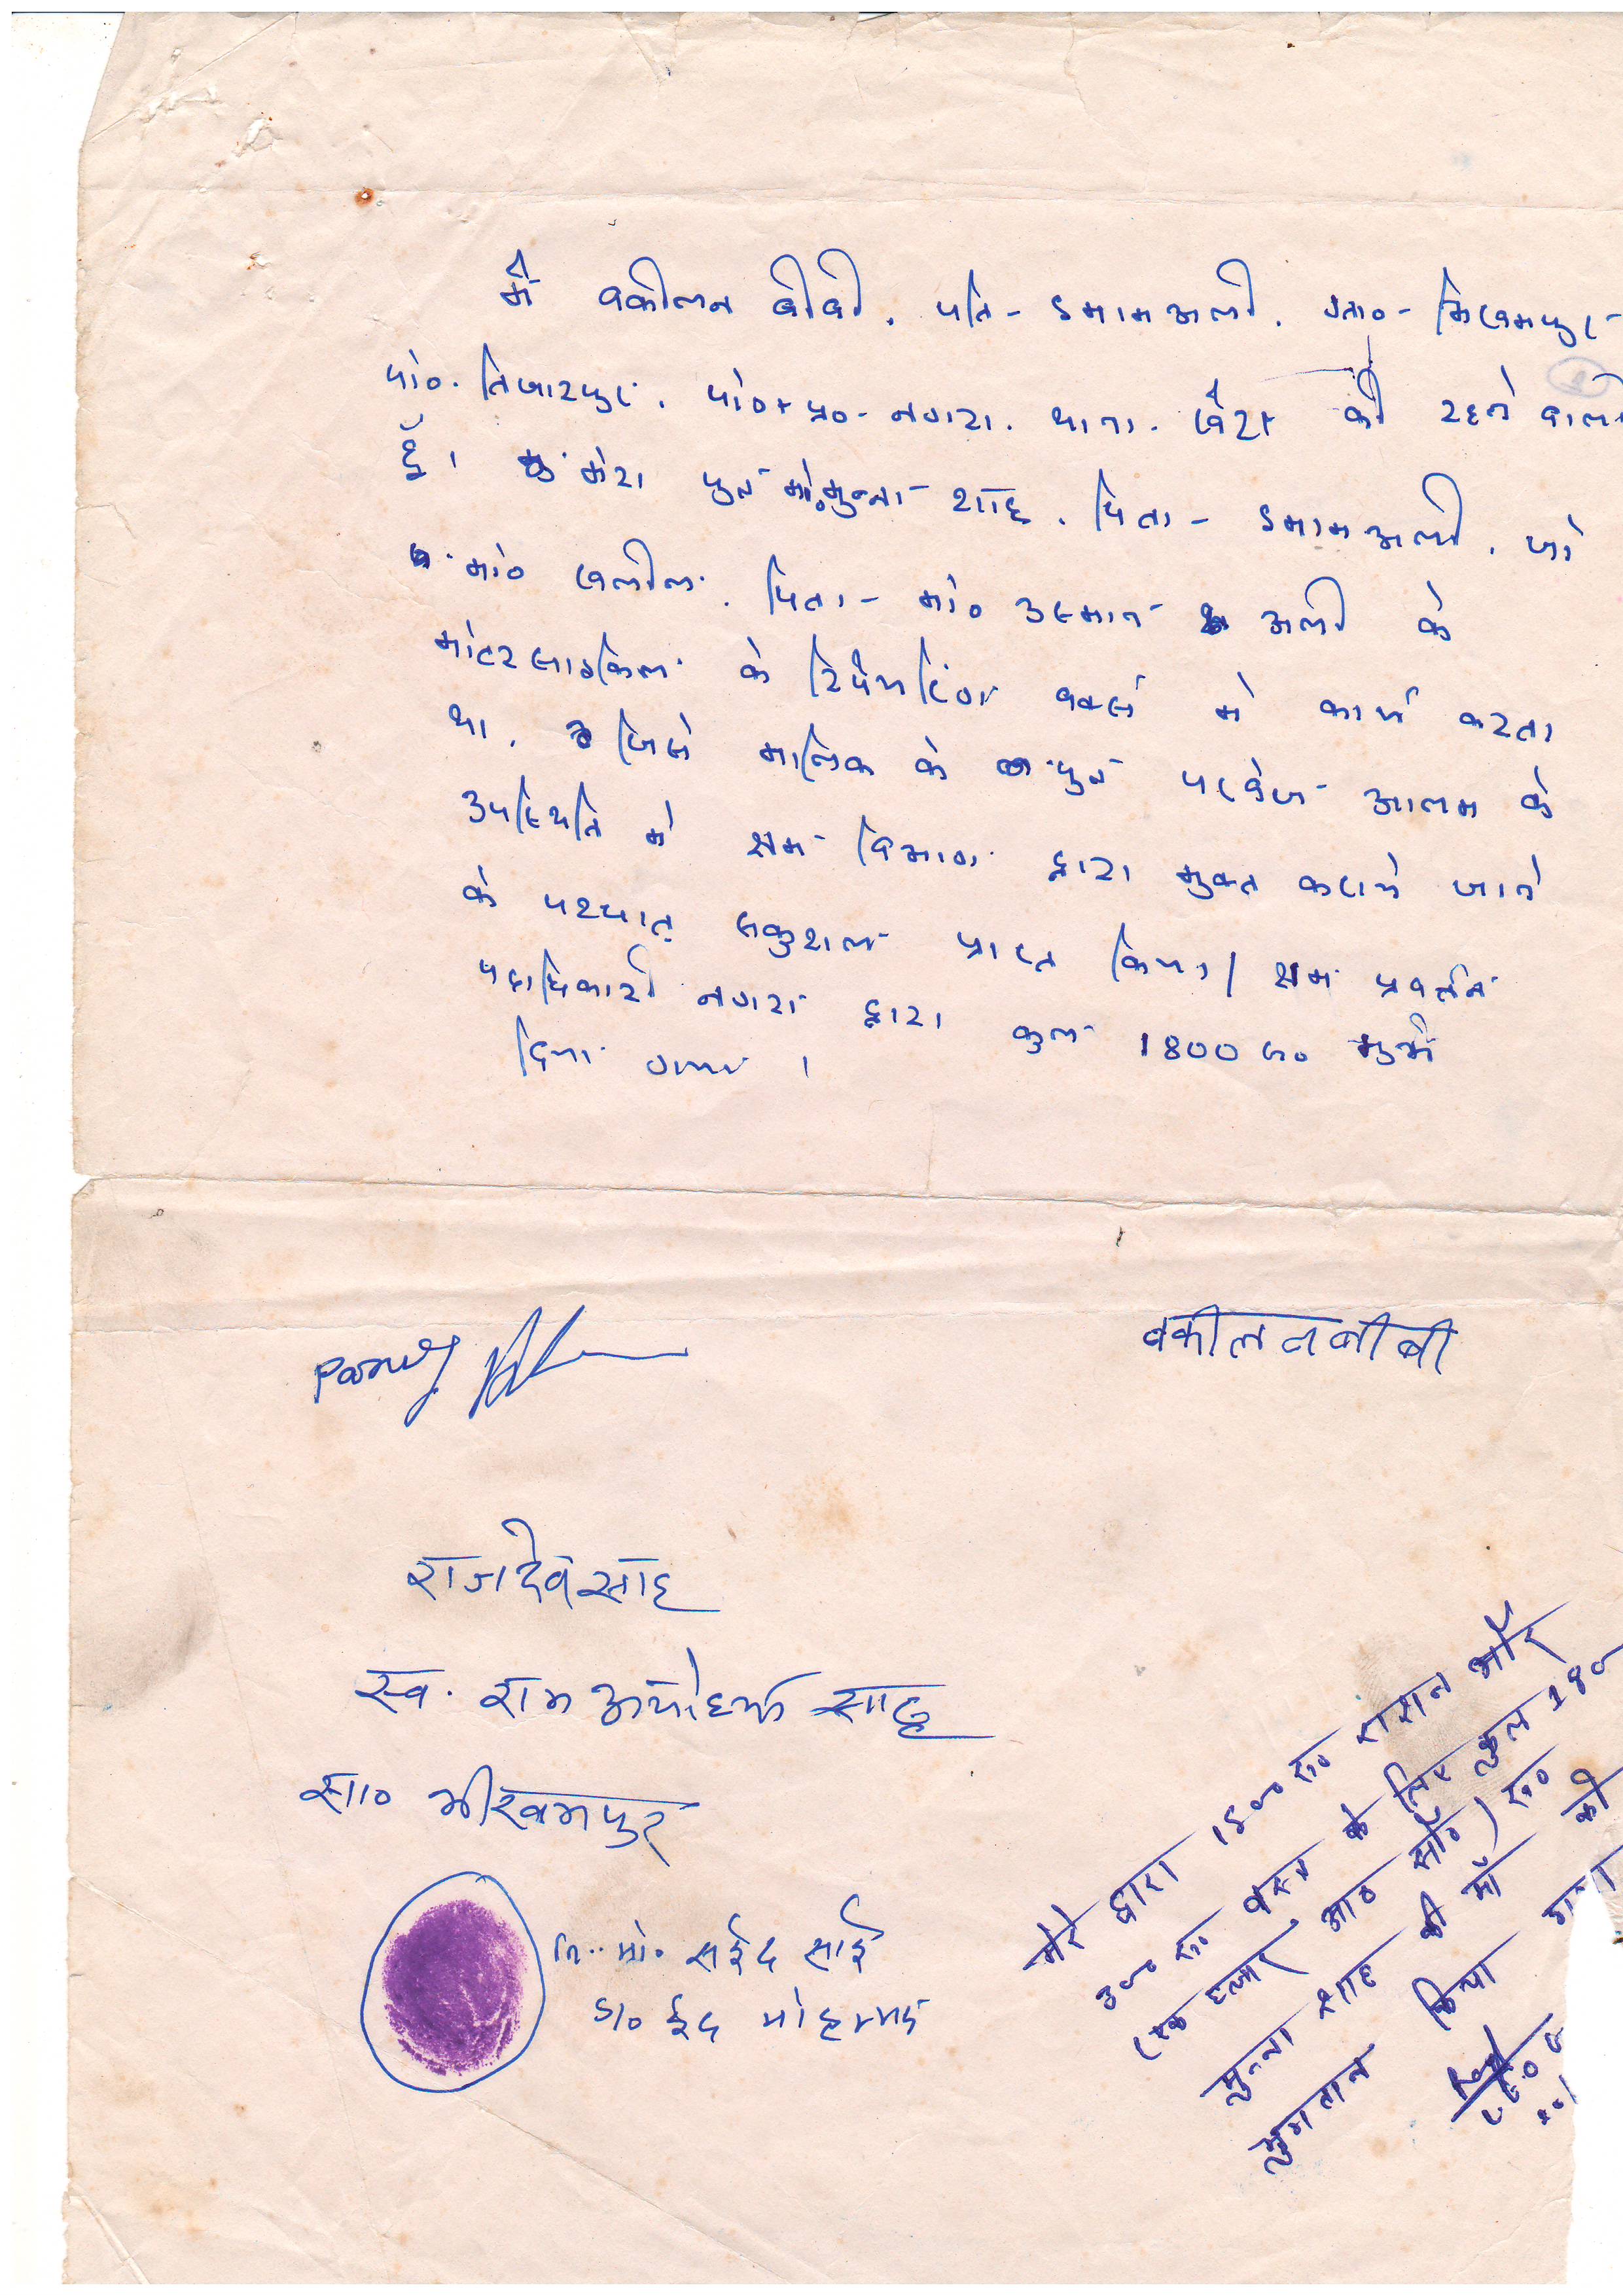 मैं वकीलन बीबी, पति - इमामअली, सा० - भिखमपुर
पो०- तिजारपुर, पो०+प्र०- नगरा, थाना- खैरा की रहने वाली
हूँ। मेरा पुत्र मो० मुन्ना शाह, पिता - इमामअली, जो
मो० खलील, पिता - मो० उस्मान अली के
मोटरसाईकिल के रिपेयरिंग वर्क्स में कार्य करता
था, जिसे मालिक के पुत्र परवेज आलम के
उपस्थिति में श्रम विभाग द्वारा मुक्त कराये जाने
के पश्चात् सकुशल प्राप्त किया। श्रम प्रवर्तन
पदाधिकारी नगरा द्वारा कुल 1800 रु० मुझे
दिया गया।
वकीलन बीबी
राजदेव साह
स्व. राम अयोध्या साह
सा० भीखमपुर
नि. मो. सईद साई
S/० ईद मोहम्मद
मेरे द्वारा 1500 रु० राशन और
300 रु० वस्त्र के लिए कुल 180
(एक हजार आठ सौ) रु०
मुन्ना शाह की माँ को
भुगतान किया गया